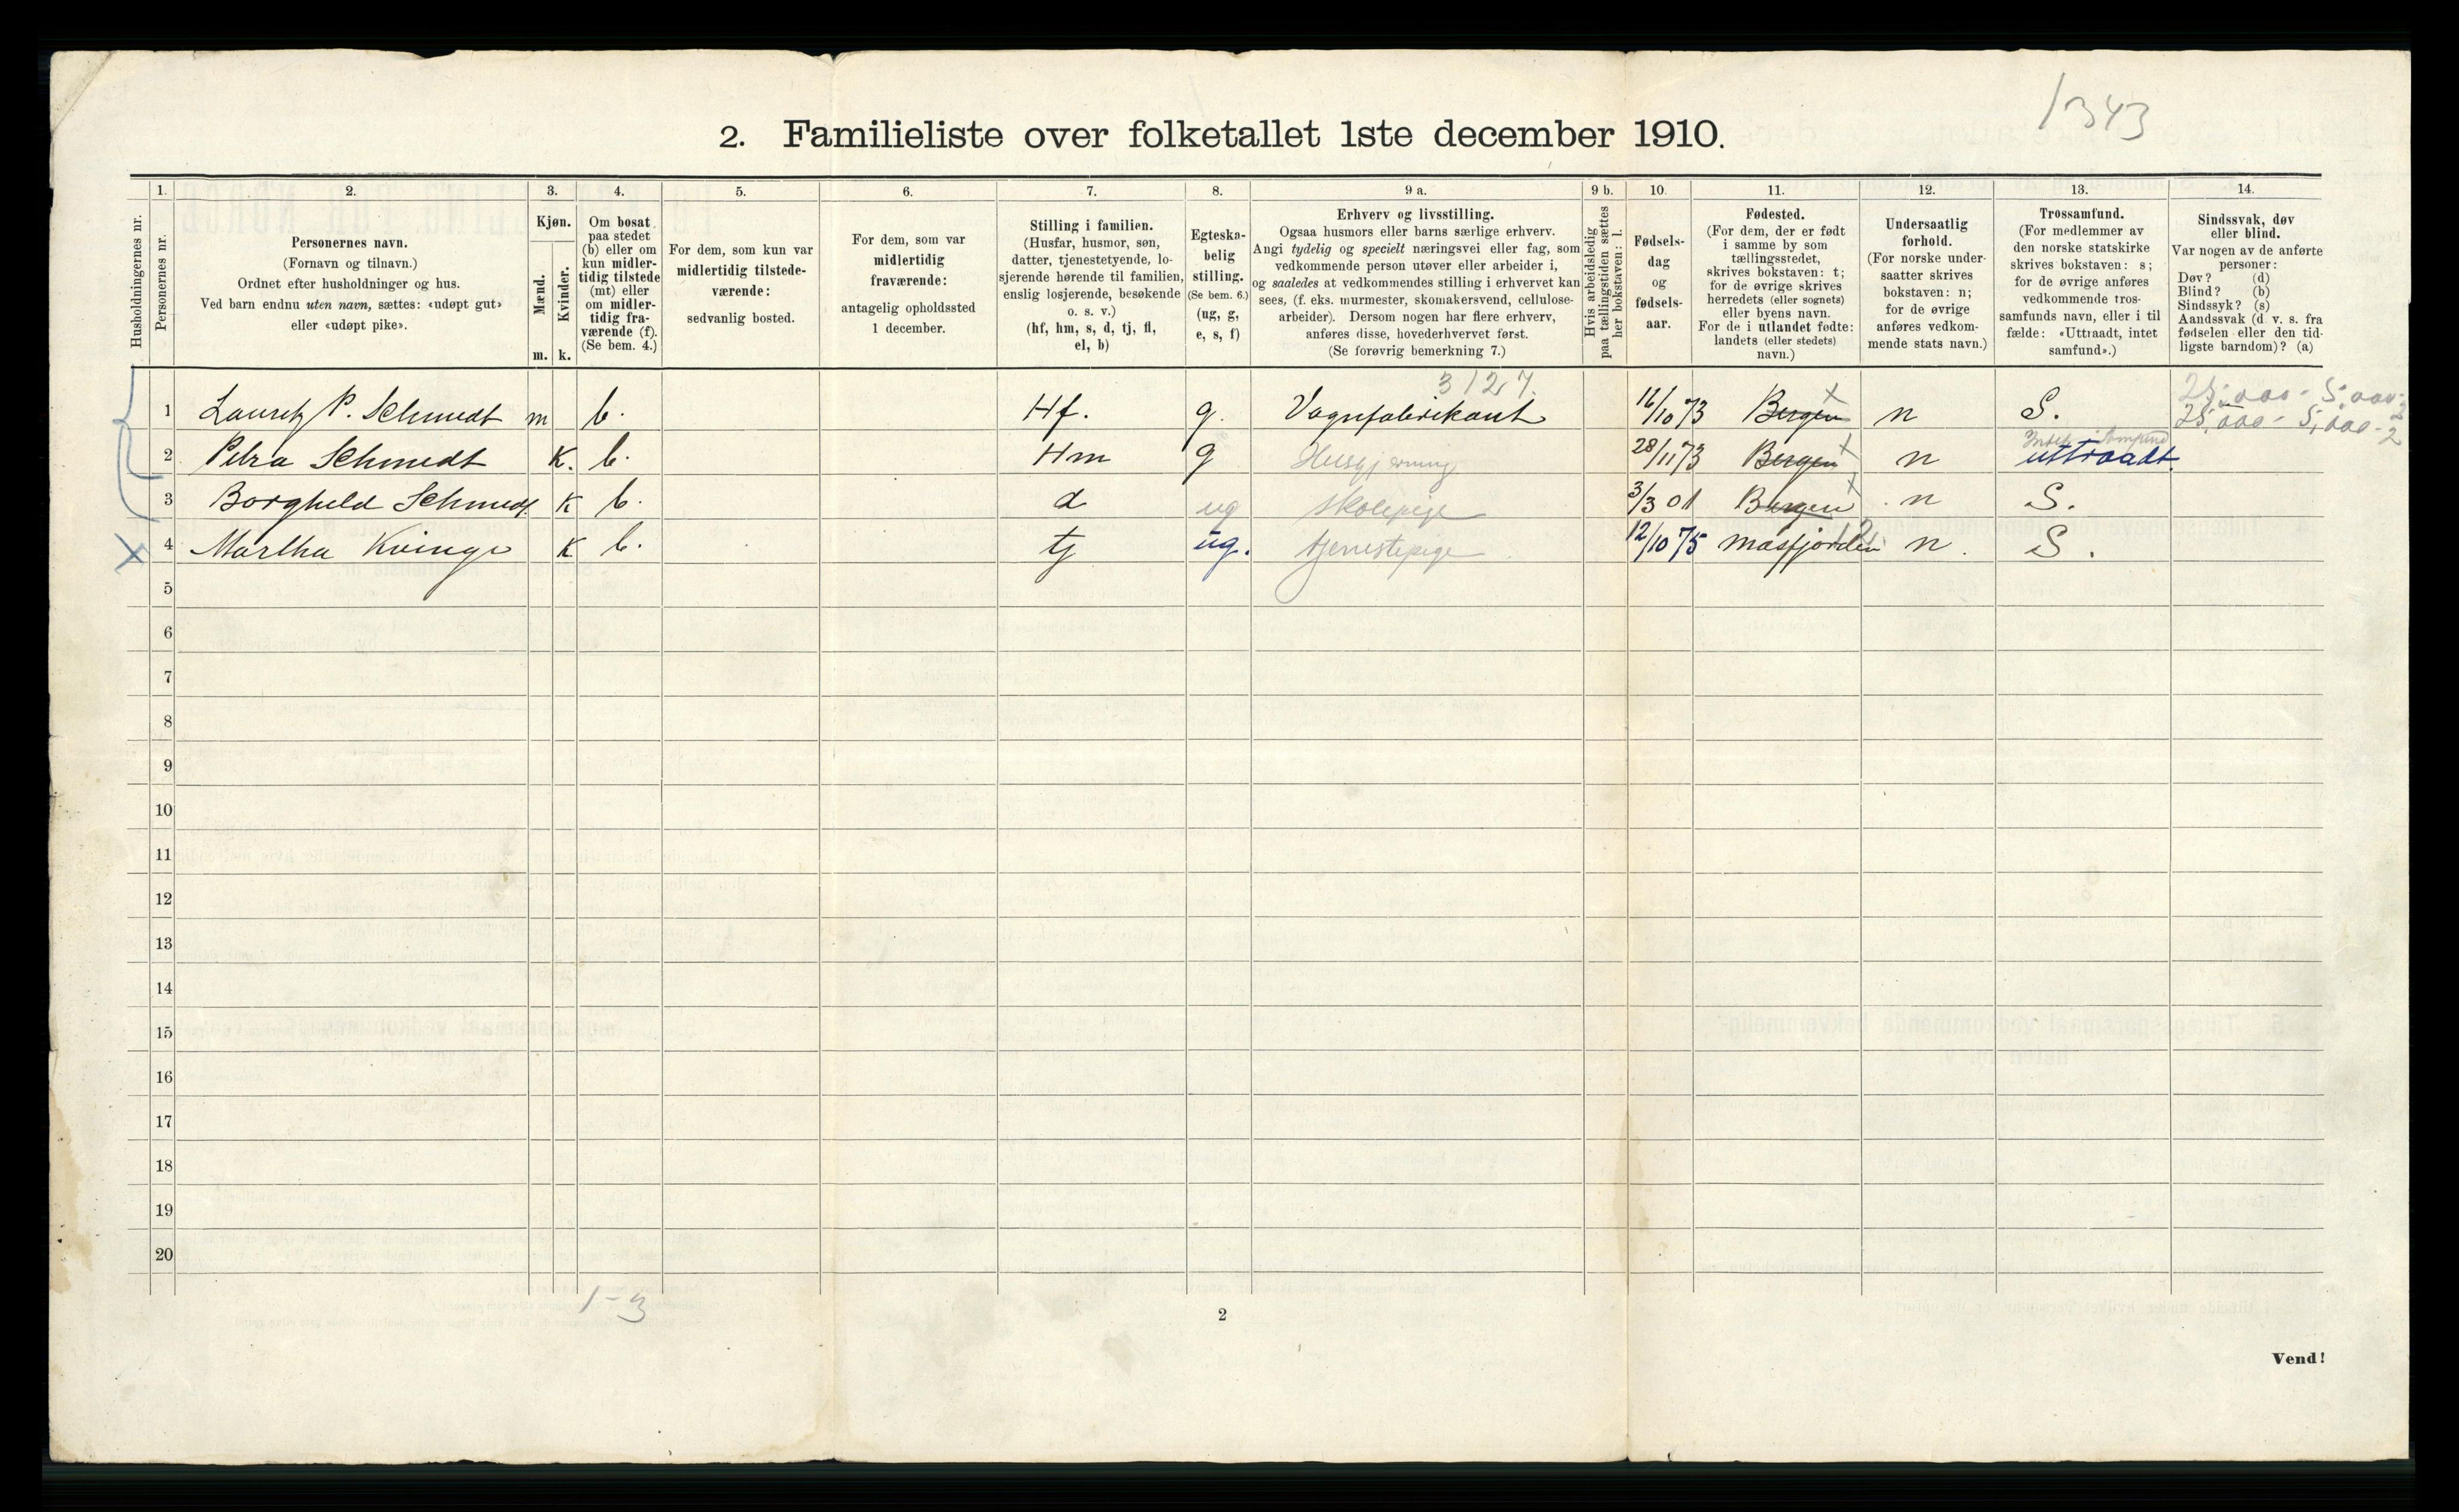 1343
2. Familieliste over folketallet 1ste december 1910.
1. 2. 3. 4. 5. 6. 7. 8. 9 a. 9 b. 10. 11. 12. 13. 14.
Husholdningernes nr.
Personernes nr.
Personernes navn.
(Fornavn og tilnavn.)
Ordnet efter husholdninger og hus.
Ved barn endnu uten navn, sættes: «udøpt gut»
eller «udøpt pike».
Kjøn.
Mænd.
Kvinder.
m. k.
Om bosat
paa stedet
(b) eller om
kun midler-
tidig tilstede
(mt) eller
om midler-
tidig fra-
værende (f).
(Se bem. 4.)
For dem, som kun var
midlertidig tilstede-
værende:
sedvanlig bosted.
For dem, som var
midlertidig
fraværende:
antagelig opholdssted
1 december.
Stilling i familien.
(Husfar, husmor, søn,
datter, tjenestetyende, lo-
sjerende hørende til familien,
enslig losjerende, besøkende
o. s. v.)
(hf, hm, s, d, tj, fl,
el, b)
Egteska-
belig
stilling.
(Se bem. 6.)
(ug, g,
e, s, f)
Erhverv og livsstilling.
Ogsaa husmors eller barns særlige erhverv.
Angi tydelig og specielt næringsvei eller fag, som
vedkommende person utøver eller arbeider i,
og saaledes at vedkommendes stilling i erhvervet kan
sees, (f. eks. murmester, skomakersvend, cellulose-
arbeider). Dersom nogen har flere erhverv,
anføres disse, hovederhvervet først.
(Se forøvrig bemerkning 7.)
Hvis arbeidsledig
paa tællingstiden sættes
her bokstaven: l.
Fødsels-
dag
og
fødsels-
aar.
Fødested.
(For dem, der er født
i samme by som
tællingsstedet,
skrives bokstaven: t;
for de øvrige skrives
herredets (eller sognets)
eller byens navn.
For de i utlandet fødte:
landets (eller stedets)
navn.)
Undersaatlig
forhold.
(For norske under-
saatter skrives
bokstaven: n;
for de øvrige
anføres vedkom-
mende stats navn.)
Trossamfund.
(For medlemmer av
den norske statskirke
skrives bokstaven: s;
for de øvrige anføres
vedkommende tros-
samfunds navn, eller i til
fælde: «Uttraadt, intet
samfund».)
Sindssvak, døv
eller blind.
Var nogen av de anførte
personer:
Døv? (d)
Blind? (b)
Sindssyk? (s)
Aandssvak (d. v. s. fra
fødselen eller den tid-
ligste barndom)? (a)
3127. 25,000 - 5,000-2
1 Lauritz P. Schmidt m b. Hf. g. Vognfabrikant 16/10 73 Bergen x n S. 25,000 - 5,000-2
Intet Samfund
2 Petra Schmidt K. b. Hm g Husgjerning 28/11 73 Bergen x n uttraadt
3 Borghild Schmidt K b. d ug skolepige 3/3 01 Bergen x n S.
x 4 Martha Kvinge K b. tj ug. tjenestepige 12/10 75 Masfjorden 12. n. S.
5
6
7
8
9
10
11
12
13
14
15
16
17
18
19
20
1-3
2
Vend!